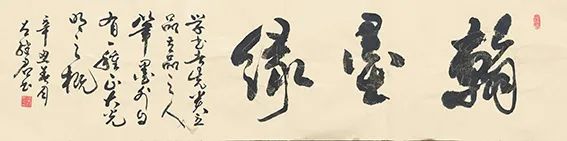 翰墨缘
学书者先贵立
品立品之人
笔墨外自
有一种正大光
明之概
辛丑 月
书